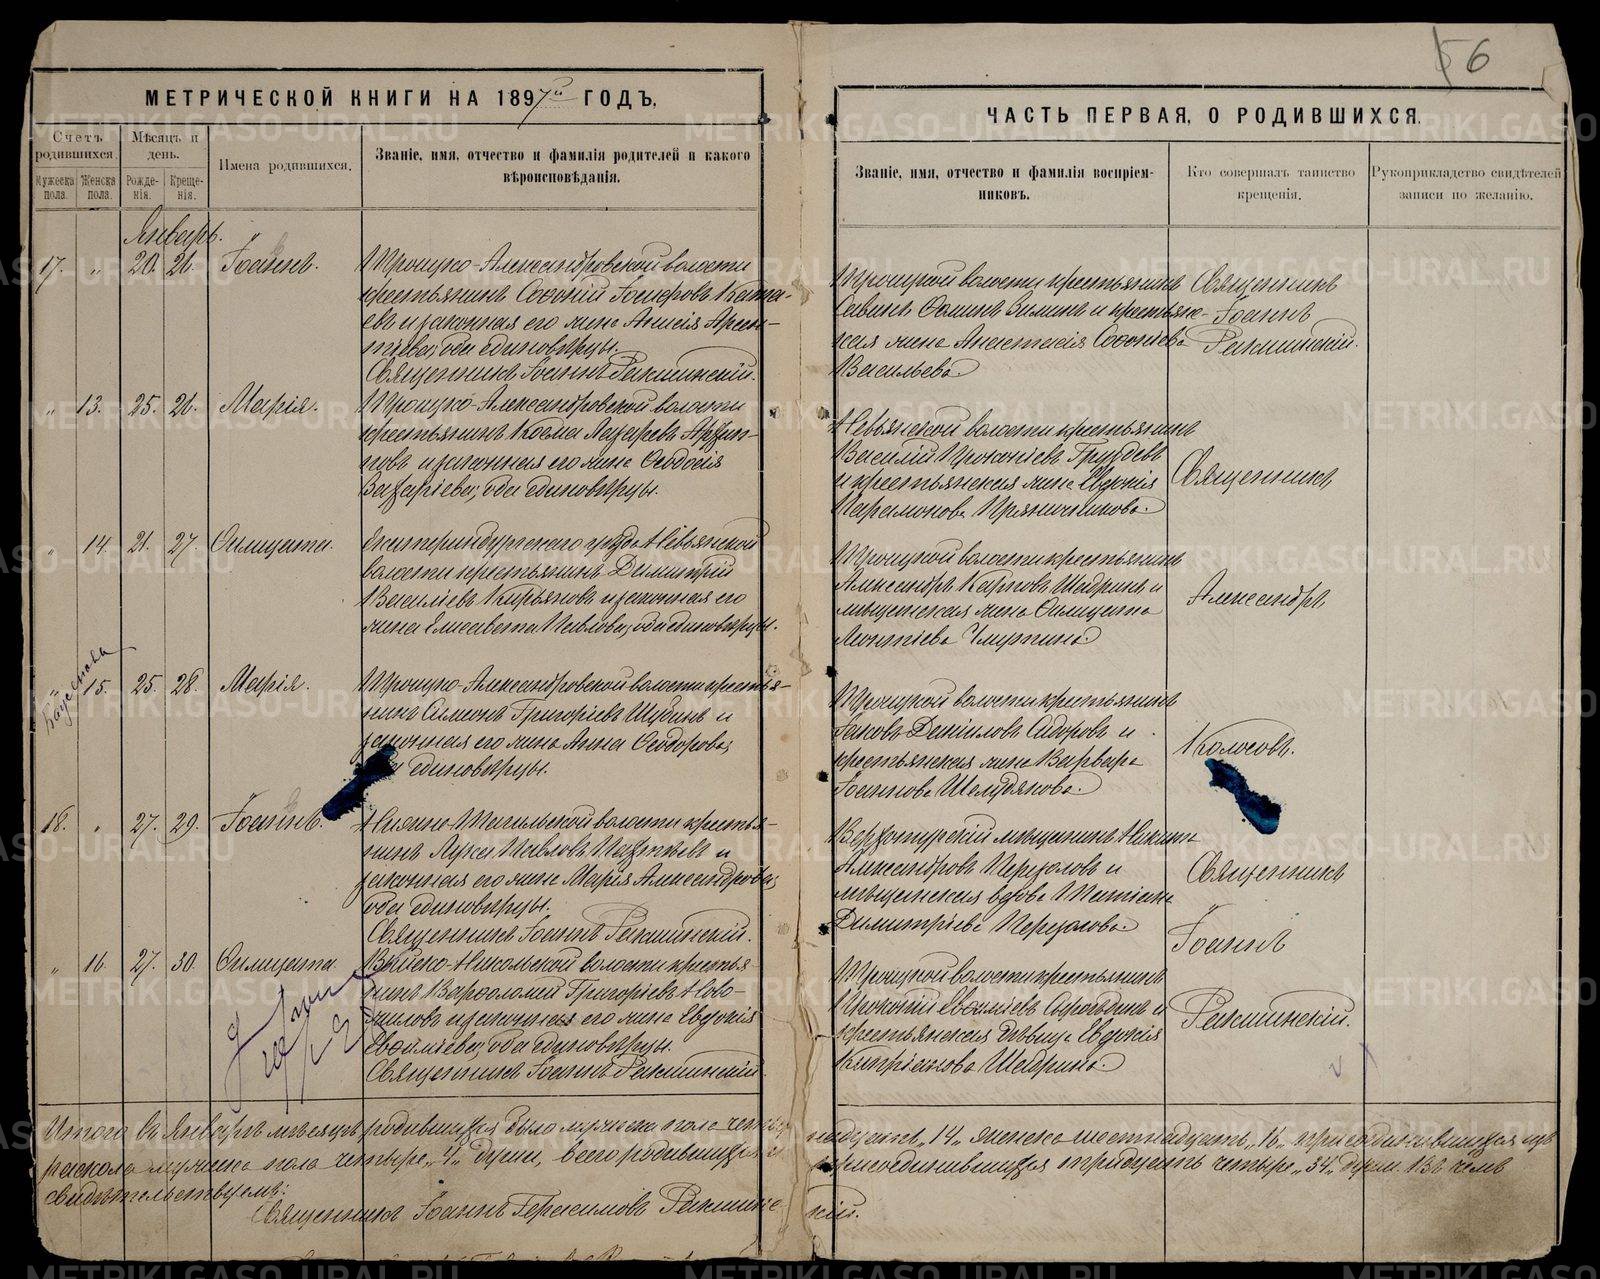 56
МЕТРИЧЕСКОЙ КНИГИ НА 1897й ГОДЪ,
Счетъ родившихся.
Мужеска пола.
Женска пола.
Мѣсяцъ и день.
Рожденія.
Крещенія.
Имена родившихся.
Званіе, имя, отчество и фамилія родителей и какого
вѣроисповѣданія.
Январь.
17. „ 20. 26. Іоаннъ.
Троицко-Александровской волости
крестьянинъ Софоній Іосифовъ
и законная его жена Анисія
оба единовѣрцы.
Священникъ Іоаннъ Ракшинскій.
„ 13. 25. 26. Марія.
Троицко-Александровской волости
крестьянинъ Косма Лазаревъ
и законная его жена Ѳеодосія
Назаріева; оба единовѣрцы.
„ 14. 21. 27. Филицата.
Екатеринбургскаго уѣзда Невьянской
волости крестьянинъ Димитрій
Василіевъ Кирьяновъ и законная его
жена Елисавета Павлова; оба единовѣрцы.
„ 15. 25. 28. Марія.
Троицко-Александровской волости крестья-
нинъ Симеонъ Григоріевъ Шубинъ и
законная его жена Анна Ѳеодорова;
оба единовѣрцы.
18. „ 27. 29. Іоаннъ.
Нижне-Тагильской волости крестья-
нинъ Лука Павловъ и
законная его жена Марія Александрова;
оба единовѣрцы.
Священникъ Іоаннъ Ракшинскій.
„ 16. 27. 30. Филицата
Выйско-Никольской волости крестья-
нинъ Варфоломей Григоріевъ Ново-
жиловъ и законная его жена Евдокія
Евфиміева; оба единовѣрцы.
Священникъ Іоаннъ Ракшинскій.
Итого въ Январѣ мѣсяцѣ родившихся было мужеска пола четыр
раскола мужеска пола четыре „4„ души, всего родившихся
свидѣтельствуемъ:
Священникъ Іоаннъ Герасимовъ Ракшинс
ЧАСТЬ ПЕРВАЯ, О РОДИВШИХСЯ.
Званіе, имя, отчество и фамилія воспріем-
никовъ.
Кто совершалъ таинство
крещенія.
Рукоприкладство свидѣтелей
записи по желанію.
Троицкой волости крестьянинъ
Савинъ Зиминъ и крестьян-
ская жена Анастасія Софоніева
Васильева.
Священникъ
Іоаннъ
Ракшинскій.
Невьянской волости крестьянинъ
Василій Прокопіевъ Груздевъ
и крестьянская жена Евдокія
Парамонова Пряничникова.
Священникъ
Троицкой волости крестьянинъ
Александръ Карповъ Шадринъ и
мѣщанская жена Филицата
Леонтіева
Александръ
Троицкой волости крестьянинъ
Іаковъ Даниловъ Сидоровъ и
крестьянская жена Варвара
Іоаннова Шелудякова.
Колосовъ.
Верхотурскій мѣщанинъ Никита
Александровъ Перезоловъ и
мѣщанская вдова Татіана
Димитріева Перезолова.
Священникъ
Іоаннъ
Троицкой волости крестьянинъ
Прокопій Евфиміевъ и
крестьянская дѣвица Евдокія
Кипріанова Шадрина.
Ракшинскій.
надцать „14„ женска шестнадцать „16„ присоединившихся изъ
присоединившихся тридцать четыре „34„ души. Въ чемъ
кій.
METRIKI.GASO-URAL.RU